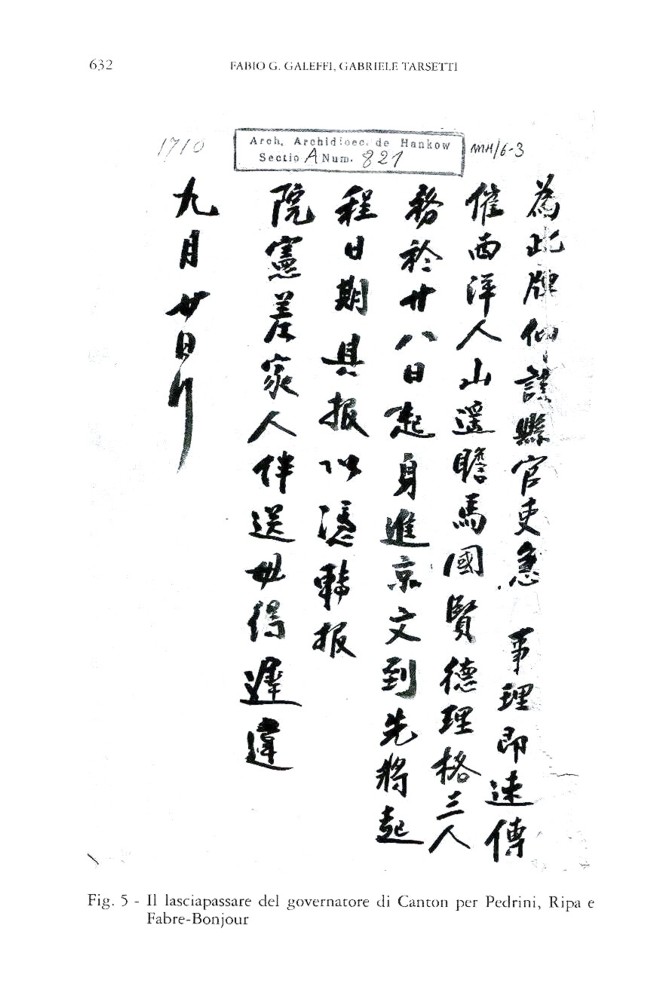 632
FABIO G. GALEFFI, GABRIELE TARSETTI
1710
Arch. Archidioec. de Hankow
Sectio A Num. 821
MH/6-3
為此牌仰該縣官吏急 事理即速傳
催西洋人山遥瞻馬國賢德理格三人
務於廿八日起身進京文到先將起
程日期具报以憑轉报
院憲差家人伴送毋得遲違
九月廿日行
Fig. 5 - Il lasciapassare del governatore di Canton per Pedrini, Ripa e
Fabre-Bonjour